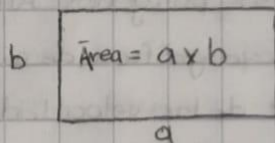 b
Area = a x b
a